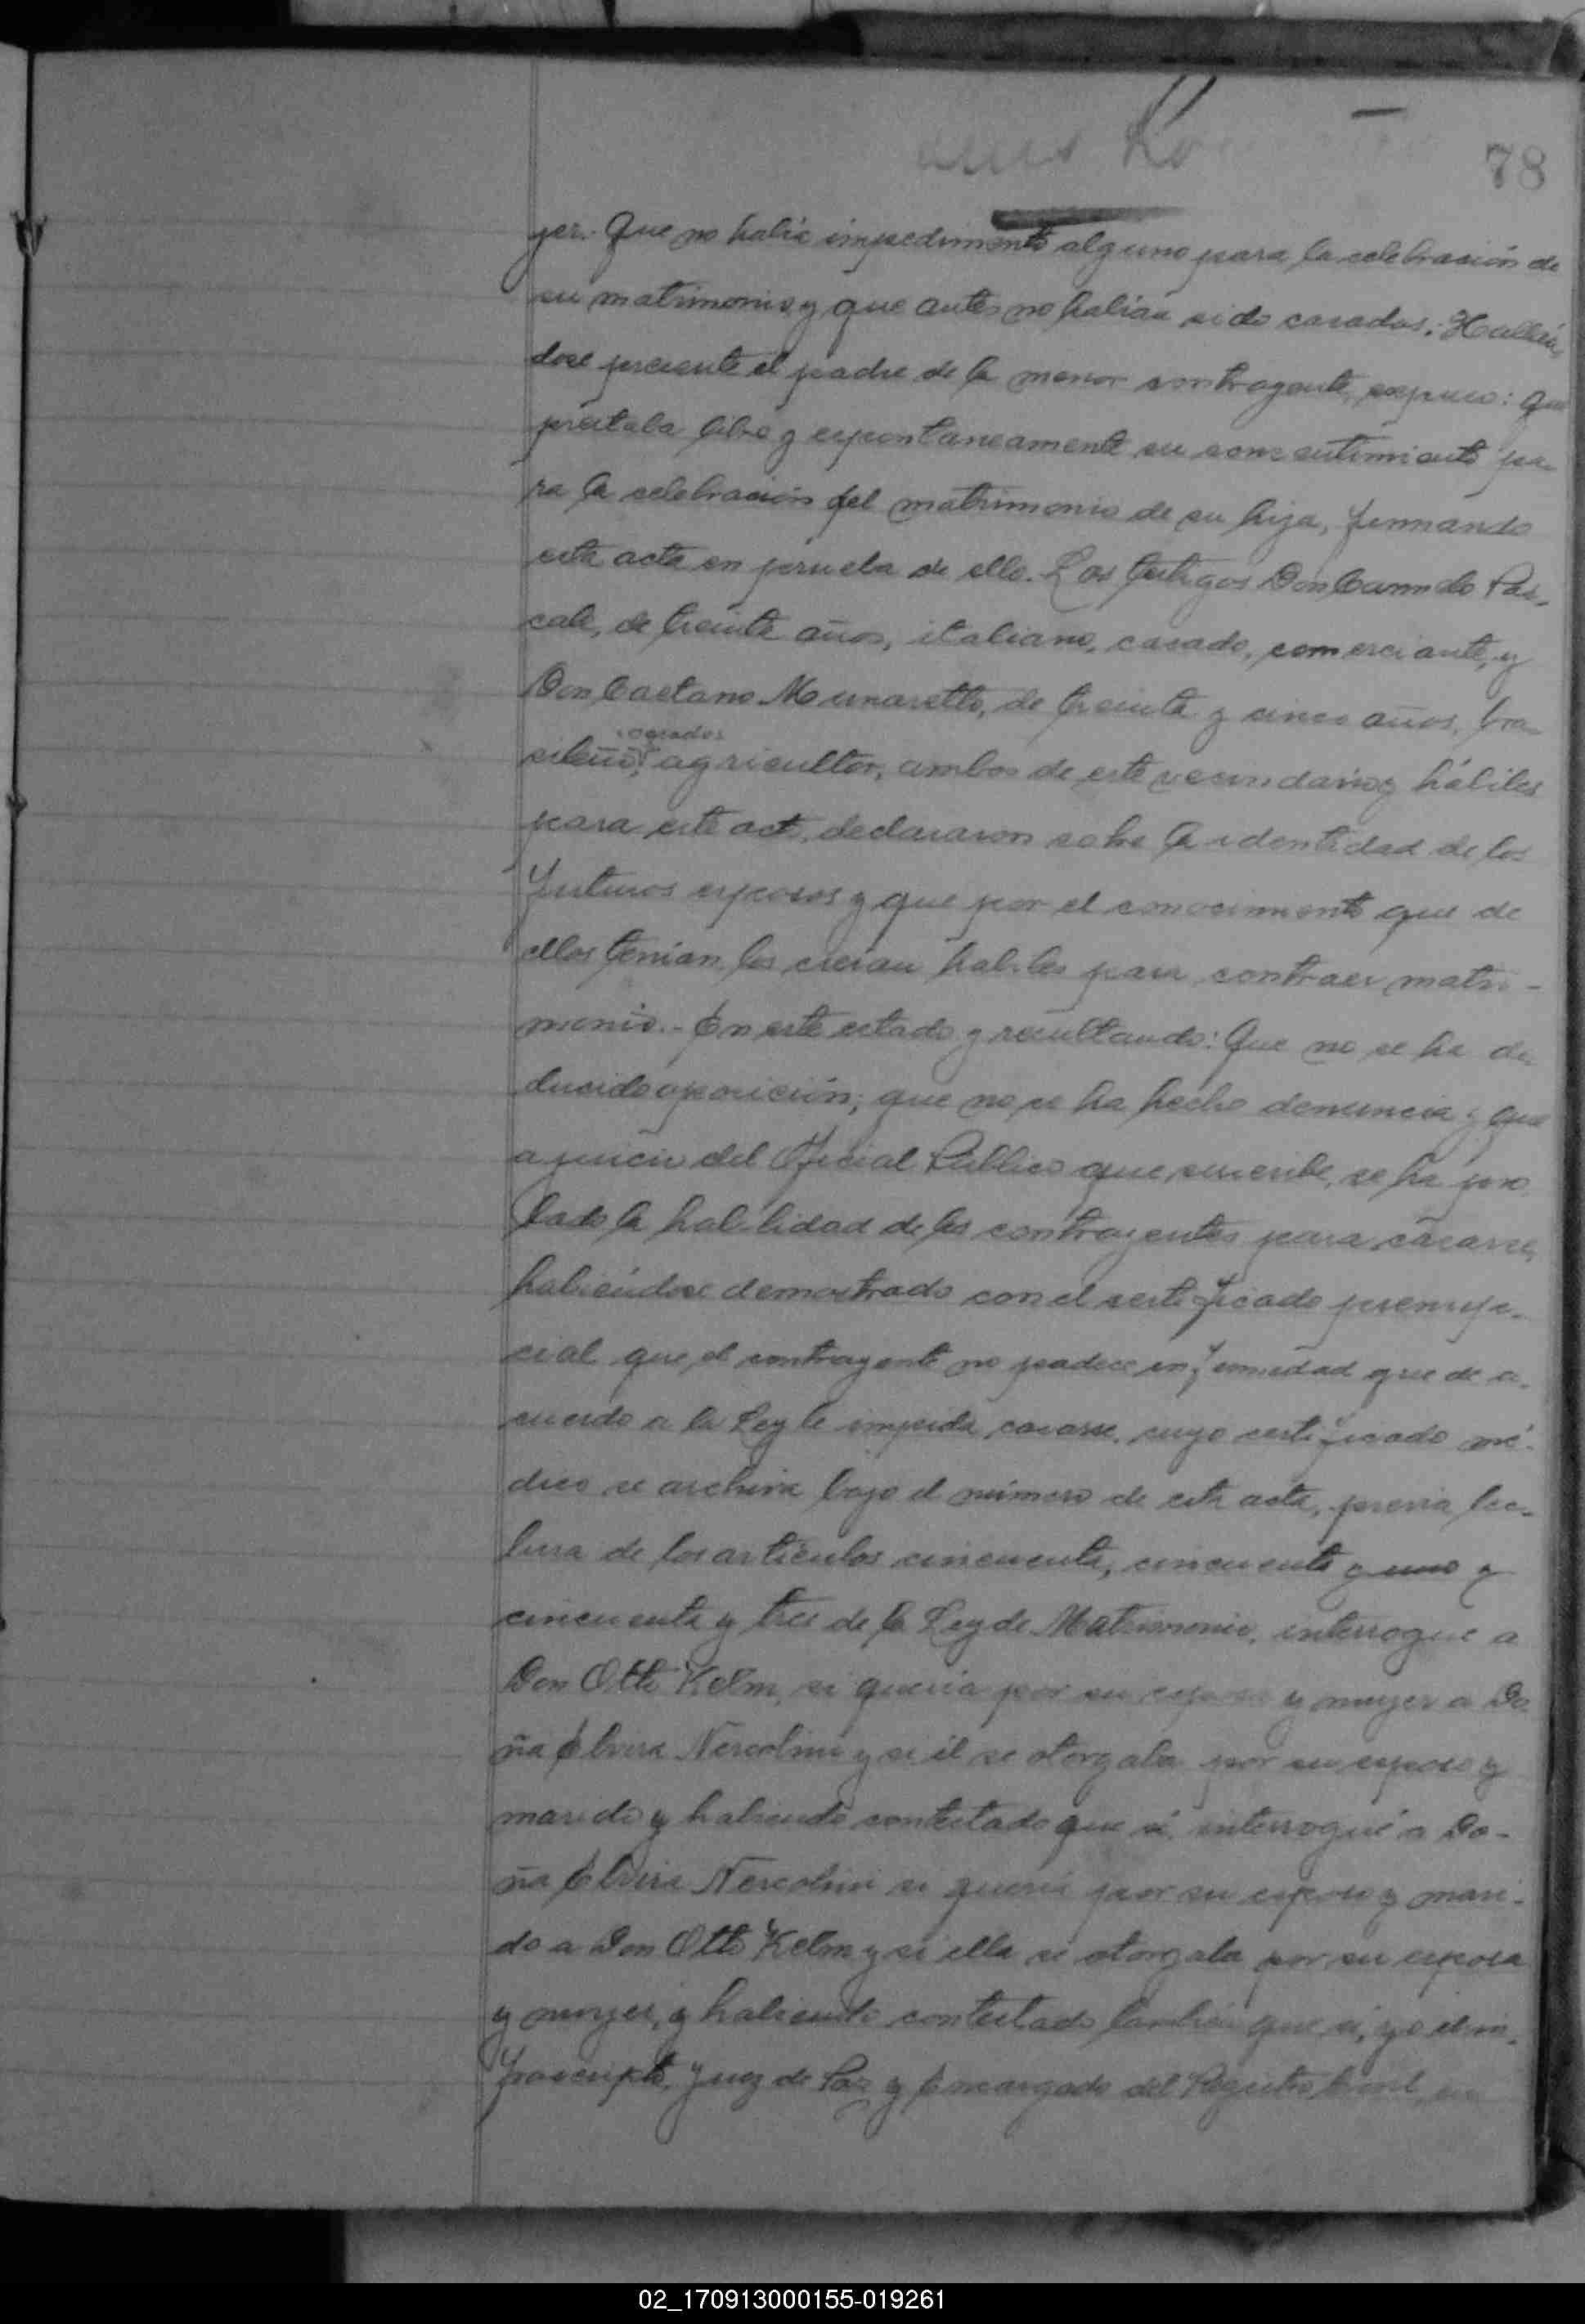 78
jer.- Que no había impedimento alguno para la celebración de
su matrimonio y que antes no habían sido casados; Hallán
dose presente el padre de la menor contrayente, expuso: que
prestaba libre y espontaneamente su consentimiento pa
ra la celebración del matrimonio de su hija, firmando
esta acta en prueba de ello. Los testigos Don Carmelo Pas-
cale, de treinta años, italiano, casado, comerciante, y
Don Caetano Munaretto, de treinta y cinco años, bra-
casados
sileño, agricultor, ambos de este vecindario y hábiles
para este acto, declararon sobre la identidad de los
futuros esposos y que por el conocimiento que de
ellos tenían, los creían habiles para contraer matri-
monio.- En este estado y resultando: Que no se ha de
ducido oposición; que no se ha hecho denuncia y que
a juicio del Oficial Público que suscribe, se ha pro
bado la habilidad de los contrayentes para casarse,
habiéndose demostrado con el certificado prenup-
cial que el contrayente no padece enfermedad que de a-
cuerdo a la Ley le impida casarse, cuyo certificado mé-
dico se archiva bajo el número de esta acta, previa lec-
tura de los artículos cincuenta, cincuenta y uno y
cincuenta y tres de la Ley de Matrimonio, interrogué a
Don Otto Kelm, si quería por su esposa y mujer a Do-
ña Elvira Nercolini y si él se otorgaba por su esposo y
marido y habiendo contestado que sí, interrogué a Do-
ña Elvira Nercolini si quería por su esposo y mari-
do a Don Otto Kelm y si ella se otorgaba por su esposa
y mujer, y habiendo contestado también que sí, yo el in-
frascripto, Juez de Paz y Encargado del Registro Civil, en
02_170913000155-019261